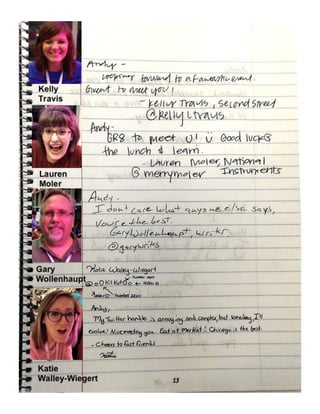 Andy -
Looking forward to a fantastic event.
Great to meet you!
- Kelly Travis, Second Street
@kellyltravis
Kelly
Travis
Andy -
GR8 to meet U! Ü Good luck @
the lunch & learn.
- Lauren Moler, National
Instruments
@merrymoler
Lauren
Moler
Andy -
I don't care what anyone else says,
you're the best.
Gary Wollenhaupt, writer
@garywrites
Gary
Wollenhaupt
Katie Walley-Wiegert
number zero
Andy,
My Twitter handle is annoying and complex, but someday, I'll
evolve! Nice meeting you. Eat at Market! Chicago is the best.
- Cheers to fast friends
Katie
Katie
Walley-Wiegert
23